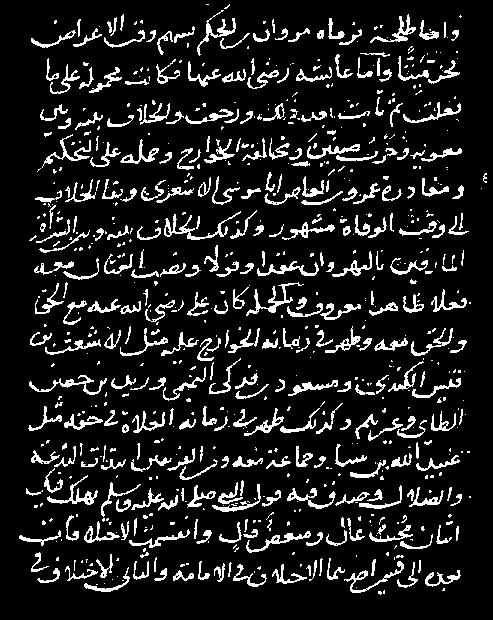 واما طلحة فرماه مروان بن الحكم بسهم وقت الاعراض
فخر ميتا واما عايشه رضي الله عنها فكانت محمولة على ما
فعلت ثم تابت بعد ذلك ورجعت والخلاف بينه وبين
معوية وحرب صفين ومخالفة الخوارج وحمله على التحكيم
ومغادرة عمرو بن العاص ابا موسى الاشعري وبقا الخلاف
الى وقت الوفاة مشهور وكذلك الخلاف بينه وبين الشراة
المارقين بالنهروان عقدا وقولا ونصب القتال معه
فعلا ظاهرا معروف وبالجملة كان علي رضي الله عنه مع الحق
والحق معه وظهر في زمانه الخوارج عليه مثل الاشعث بن
قيس الكندي ومسعود بن فدكي التميمي وزيد بن حصين
الطاي وغيرهم وكذلك ظهر في زمانه الغلاة في حقه مثل
عبد الله بن سبا وجماعة معه ومن الفريقين ابتدات البدعة
والضلال وصدق فيه قول النبي صلى الله عليه وسلم يهلك فيك
اثنان محب غال ومبغض قال وانقسمت الاختلافات
بعده الى قسمين احدهما الاختلاف في الامامة والثاني الاختلاف في